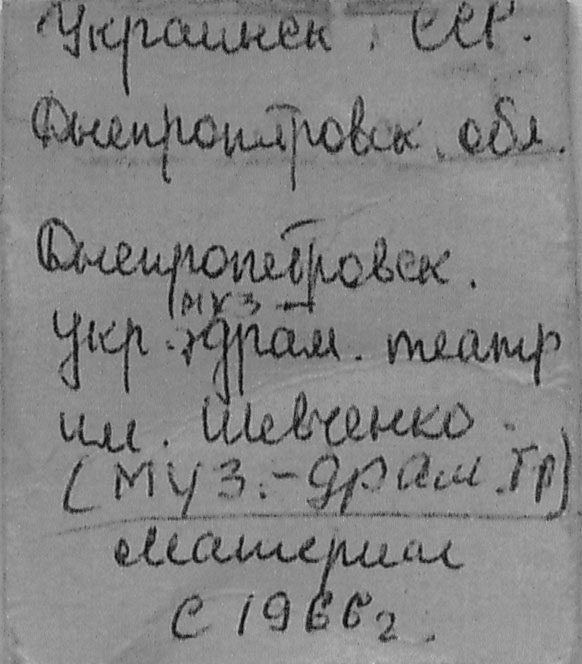 Украинск. ССР.
Днепропетровск. обл.
Днепропетровск.
муз -
укр. драм. театр
им. Шевченко.
(муз.-драм. тр)
Материал
с 1966 г.